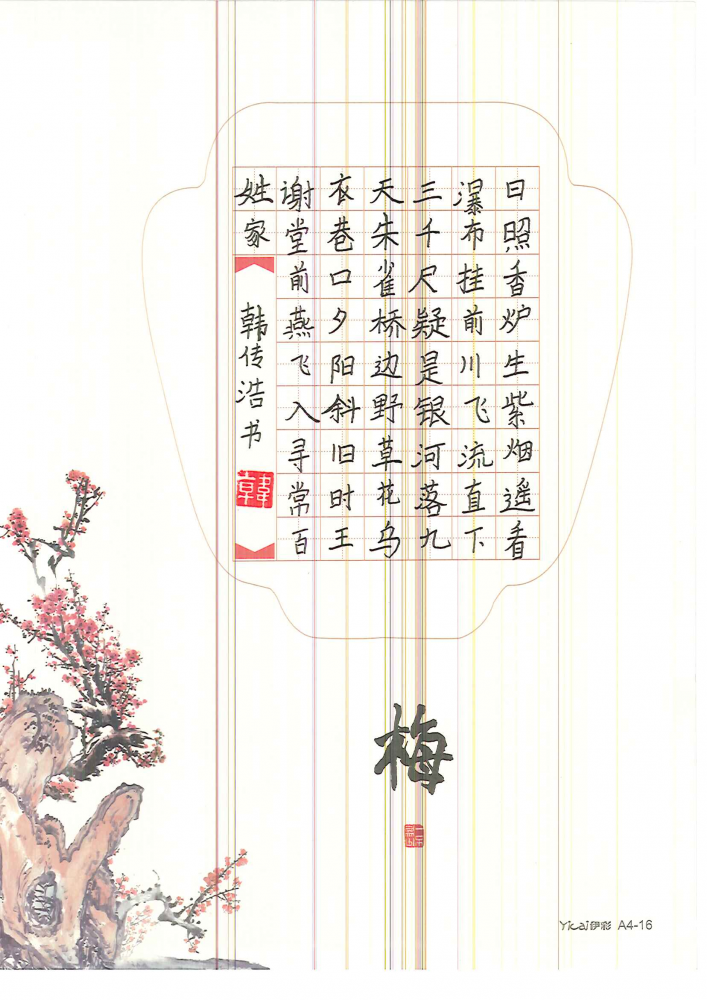 日照香炉生紫烟遥看
瀑布挂前川飞流直下
三千尺疑是银河落九
天朱雀桥边野草花乌
衣巷口夕阳斜旧时王
谢堂前燕飞入寻常百
姓家
韩传浩书
韓
梅
Yicai伊彩 A4-16